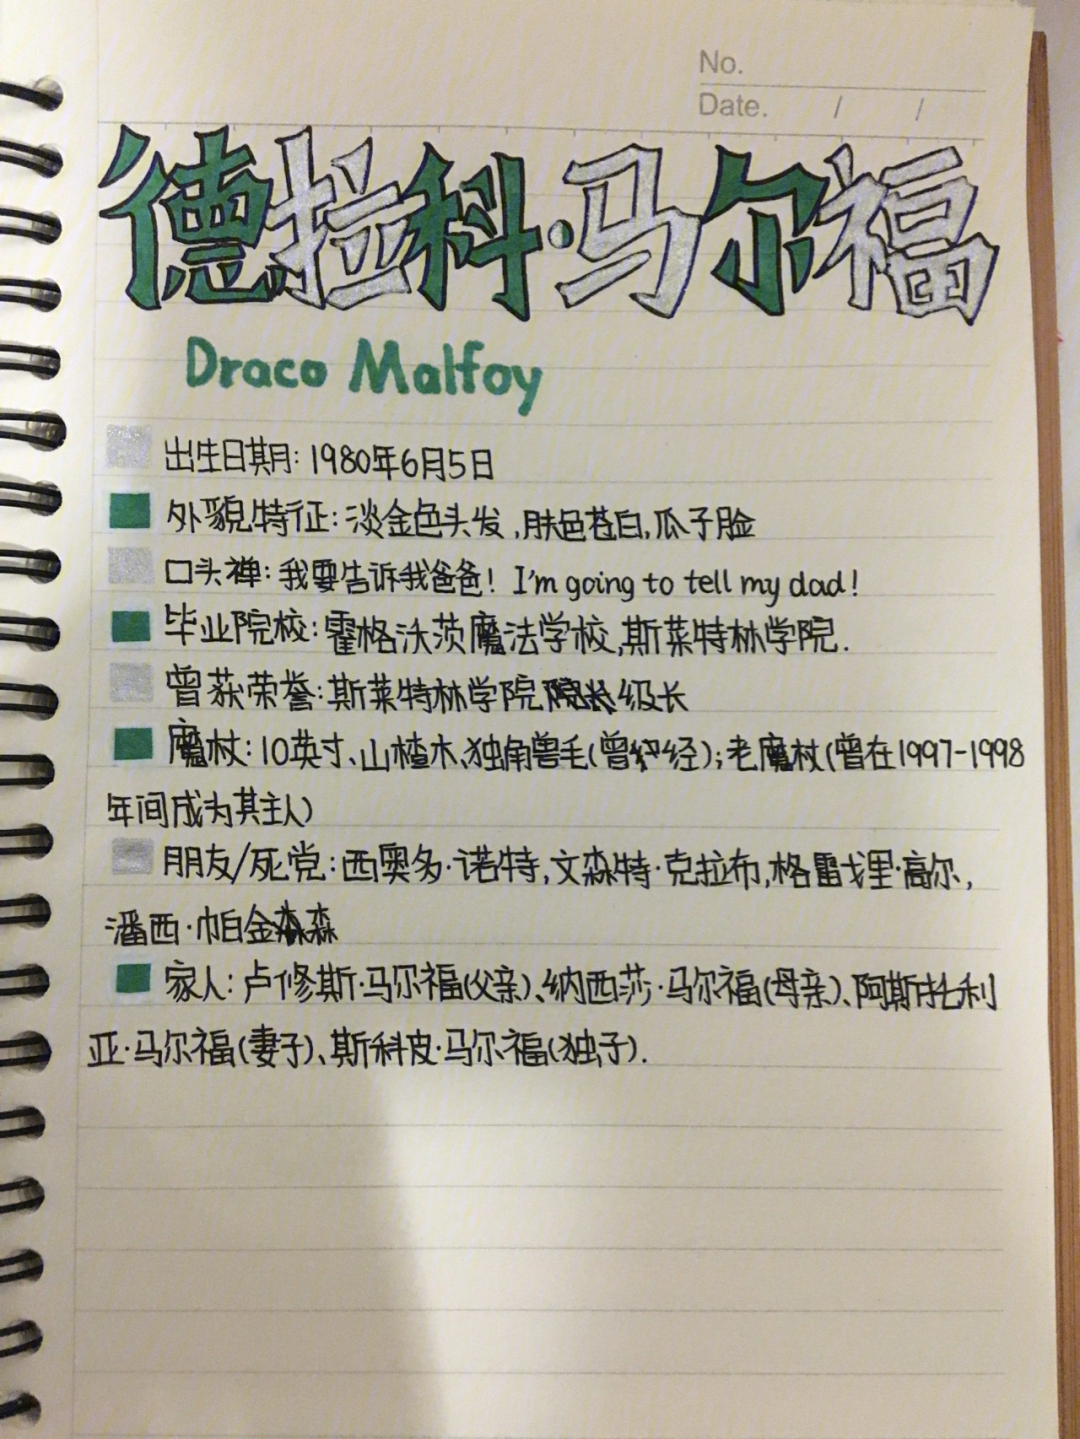 No.
Date. / /
德拉科·马尔福
Draco Malfoy
出生日期月: 1980年6月5日
外貌特征: 淡金色头发,肤色苍白,瓜子脸
口头禅: 我要告诉我爸爸! I'm going to tell my dad!
毕业院校: 霍格沃茨魔法学校,斯莱特林学院.
曾获荣誉: 斯莱特林学院级长
魔杖: 10英寸、山楂木、独角兽毛(曾经);老魔杖(曾在1997-1998
年间成为其主人)
朋友/死党: 西奥多·诺特,文森特·克拉布,格雷戈里·高尔,
潘西·帕金森
家人: 卢修斯·马尔福(父亲)、纳西莎·马尔福(母亲)、阿斯托利
亚·马尔福(妻子)、斯科皮·马尔福(独子).